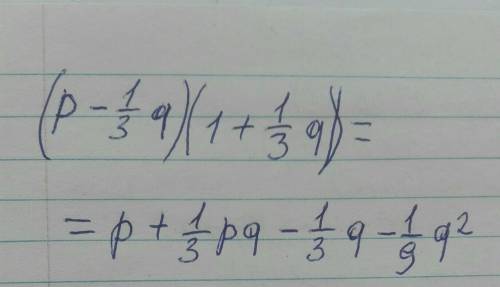 (p - 1/3 q)(1 + 1/3 q) =
= p + 1/3 pq - 1/3 q - 1/9 q²